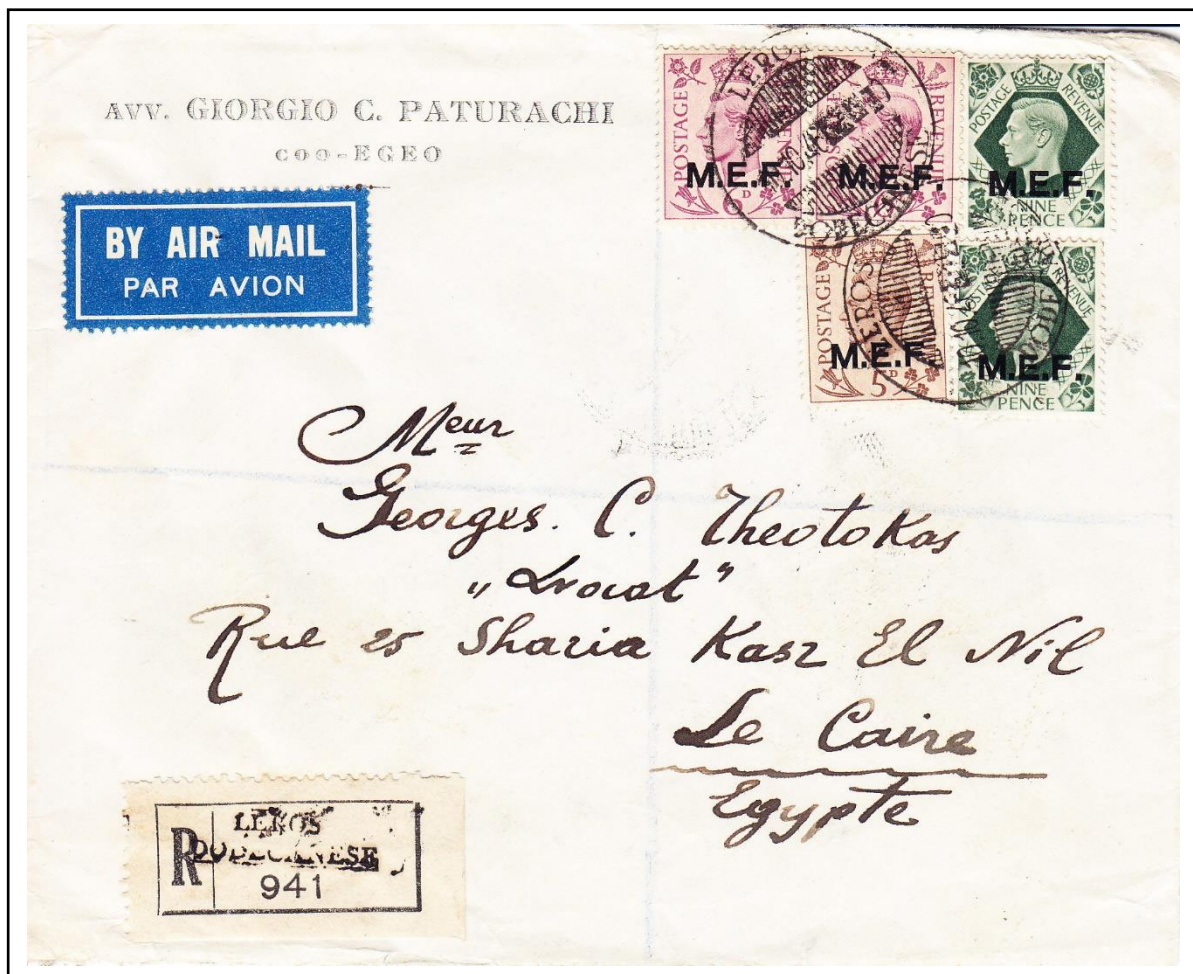 AVV. GIORGIO C. PATURACHI
COO-EGEO
BY AIR MAIL
PAR AVION
POSTAGE REVENUE
M.E.F.
POSTAGE REVENUE
M.E.F.
POSTAGE REVENUE
M.E.F.
NINE PENCE
POSTAGE
M.E.F.
5D
POSTAGE REVENUE
M.E.F.
NINE PENCE
LEROS
LEROS
Meur
Georges. C. Theotokas
Rue 25 Sharia Kasr El Nil
Le Caire
Egypte
R
LEROS
DODECANESE
941